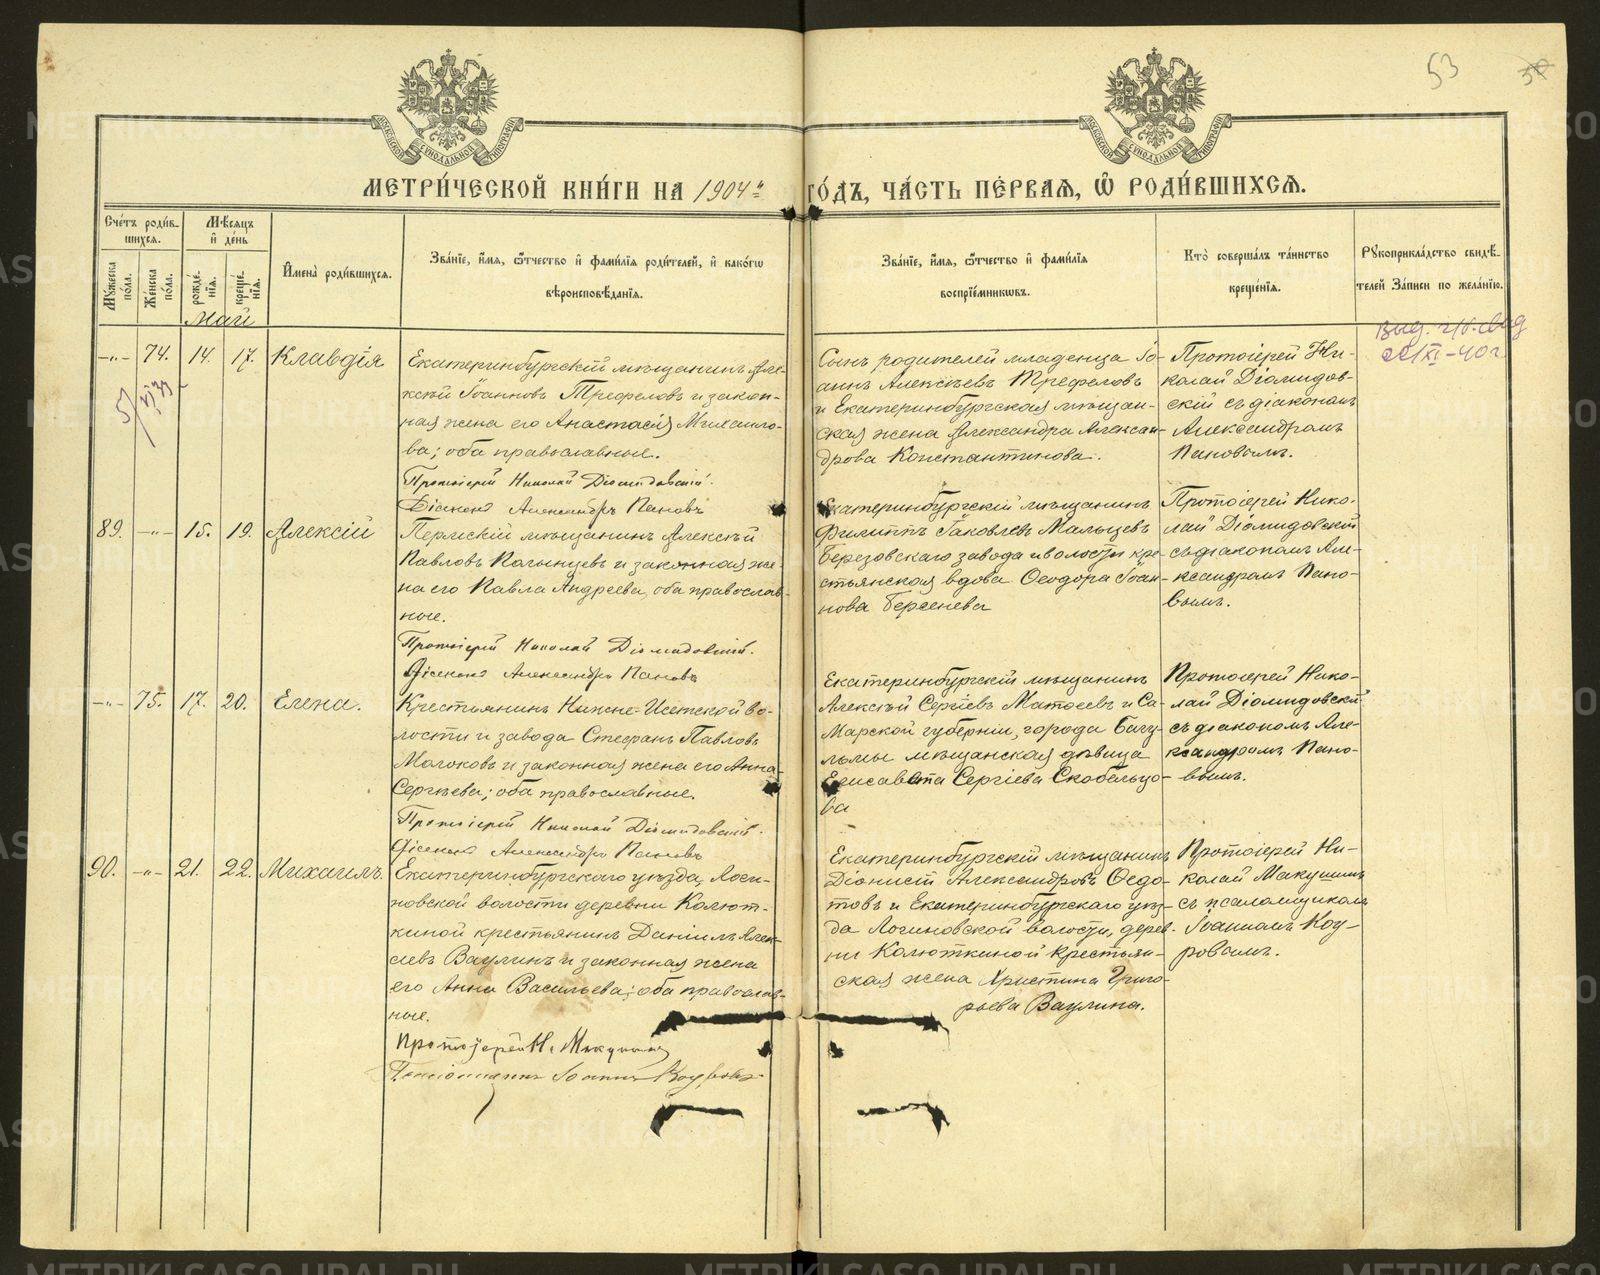 53
МЕТРИ́ЧЕСКОЙ КНИ́ГИ НА 1904й ГО́ДЪ, ЧА́СТЬ ПЕ́РВАЯ, Ѡ РОДИ́ВШИХСЯ.
Сче́тъ роди́в-
шихся.
Мꙋжеска по́ла.
Же́нска по́ла.
Мѣ́сяцъ
и҆ де́нь
рожде́-
нїя.
креще́-
нїя.
И҆мена̀ роди́вшихся.
Зва́нїе, и҆́мя, ѻ҆́тчество и҆ фами́лїя роди́телей, и҆ како́гѡ
вѣроисповѣ́данїя.
Зва́нїе, и҆́мя, ѻ҆́тчество и҆ фами́лїя
воспрїе́мникѡвъ.
Кто̀ соверша́лъ та́инство
креще́нїя.
Рꙋкоприкла́дство свидѣ́-
телей За́писи по жела́нїю.
Май
—„— 74. 14. 17. Клавдія
Екатеринбургскій мѣщанинъ Але-
ксѣй Іоанновъ Трефеловъ и закон-
ная жена его Анастасія Михаило-
ва; оба православные.
Протоіерей Николай Діомидовскій.
Діаконъ Александръ Пановъ
Сынъ родителей младенца Іо-
аннъ Алексѣевъ Трефеловъ
и Екатеринбургская мѣщан-
ская жена Александра Алексан-
дрова Константинова.
Протоіерей Ни-
колай Діомидов-
скій съ діакономъ
Александромъ
Пановымъ.
89. —„— 15. 19. Алексій
Пермскій мѣщанинъ Алексѣй
Павловъ Казынцевъ и законная же-
на его Павла Андреева, оба православ-
ные.
Протоіерей Николай Діомидовскій.
Діаконъ Александръ Пановъ
Екатеринбургскій мѣщанинъ
Филиппъ Іаковлевъ Мальцевъ
Березовскаго завода и волости кре-
стьянская вдова Ѳеодора Іоан-
нова Бергенева
Протоіерей Нико-
лай Діомидовскій
съ діакономъ Але-
ксандромъ Пано-
вымъ.
—„— 75. 17. 20. Елена.
Крестьянинъ Нижне-Исетской во-
лости и завода Стефанъ Павловъ
Молоковъ и законная жена его Анна
Сергѣева; оба православные.
Протоіерей Николай Діомидовскій.
Діаконъ Александръ Пановъ
Екатеринбургскій мѣщанинъ
Алексѣй Сергѣевъ Матѳеевъ и Са-
марской губерніи, города Бугу-
льмы мѣщанская дѣвица
Елисавета Сергіева Скобельцо-
ва
Протоіерей Нико-
лай Діомидовскій
съ діакономъ Але-
ксандромъ Пано-
вымъ.
90. —„— 21. 22. Михаилъ
Екатеринбургскаго уѣзда, Логи-
новской волости деревни Колют-
киной крестьянинъ Даніилъ Алек-
сѣевъ Ваулинъ и законная жена
его Анна Васильева; оба православ-
ные.
Протоіерей Н. Макушинъ
Псаломщикъ Іоаннъ Коуровъ
Екатеринбургскій мѣщанинъ
Діонисій Александровъ Ѳедо-
товъ и Екатеринбургскаго уѣз-
да Логиновской волости, дерев-
ни Колюткиной крестьян-
ская жена Христина Григо-
рьева Ваулина.
Протоіерей Ни-
колай Макушинъ
съ псаломщикомъ
Іоанномъ Коу-
ровымъ.